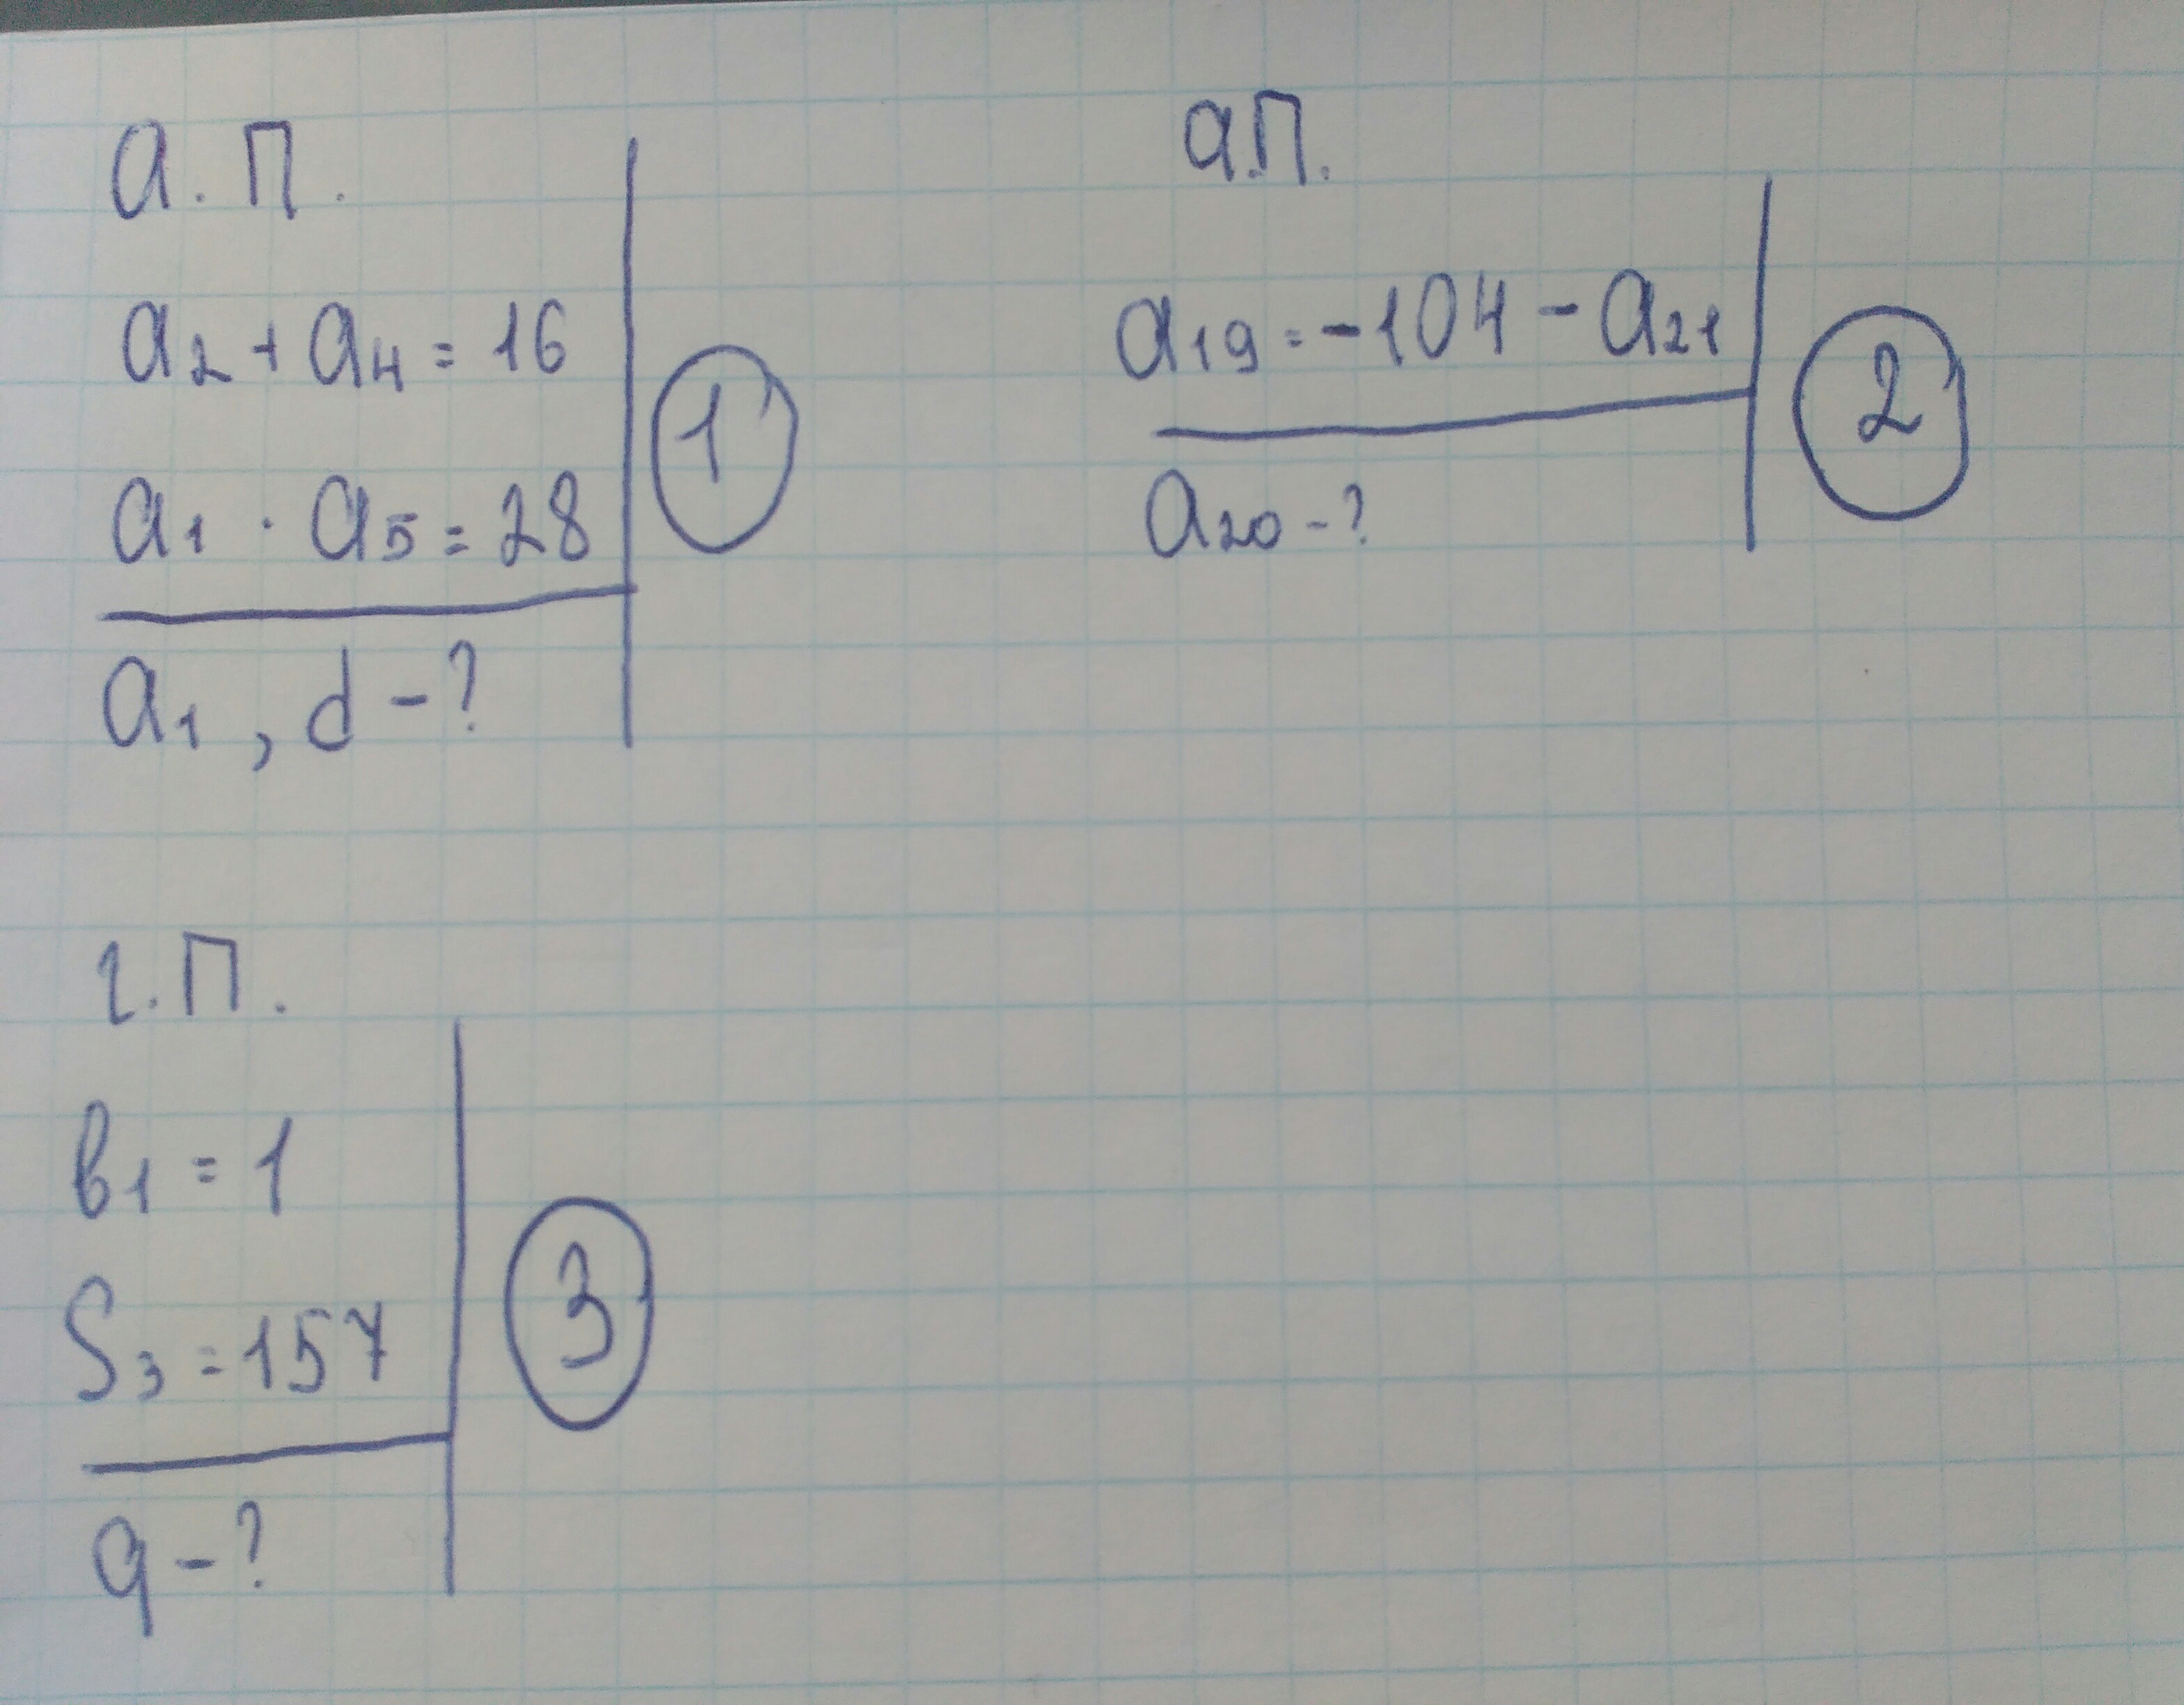 а. П.
a₂ + a₄ = 16
a₁ · a₅ = 28
a₁, d - ?
1
а.П.
a₁₉ = -104 - a₂₁
a₂₀ - ?
2
г. П.
b₁ = 1
S₃ = 157
q - ?
3